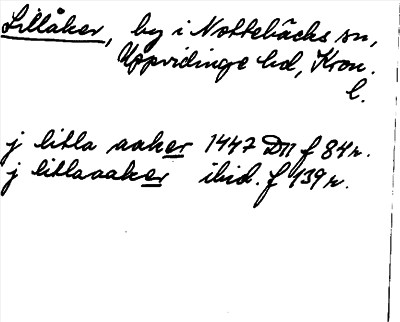 Lillåker, by i Nottebäcks sn,
Uppvidinge hd, Kron.
l.
j litla aaker 1447 Dn f 84r.
j litlaaaker ibid. f 139r.